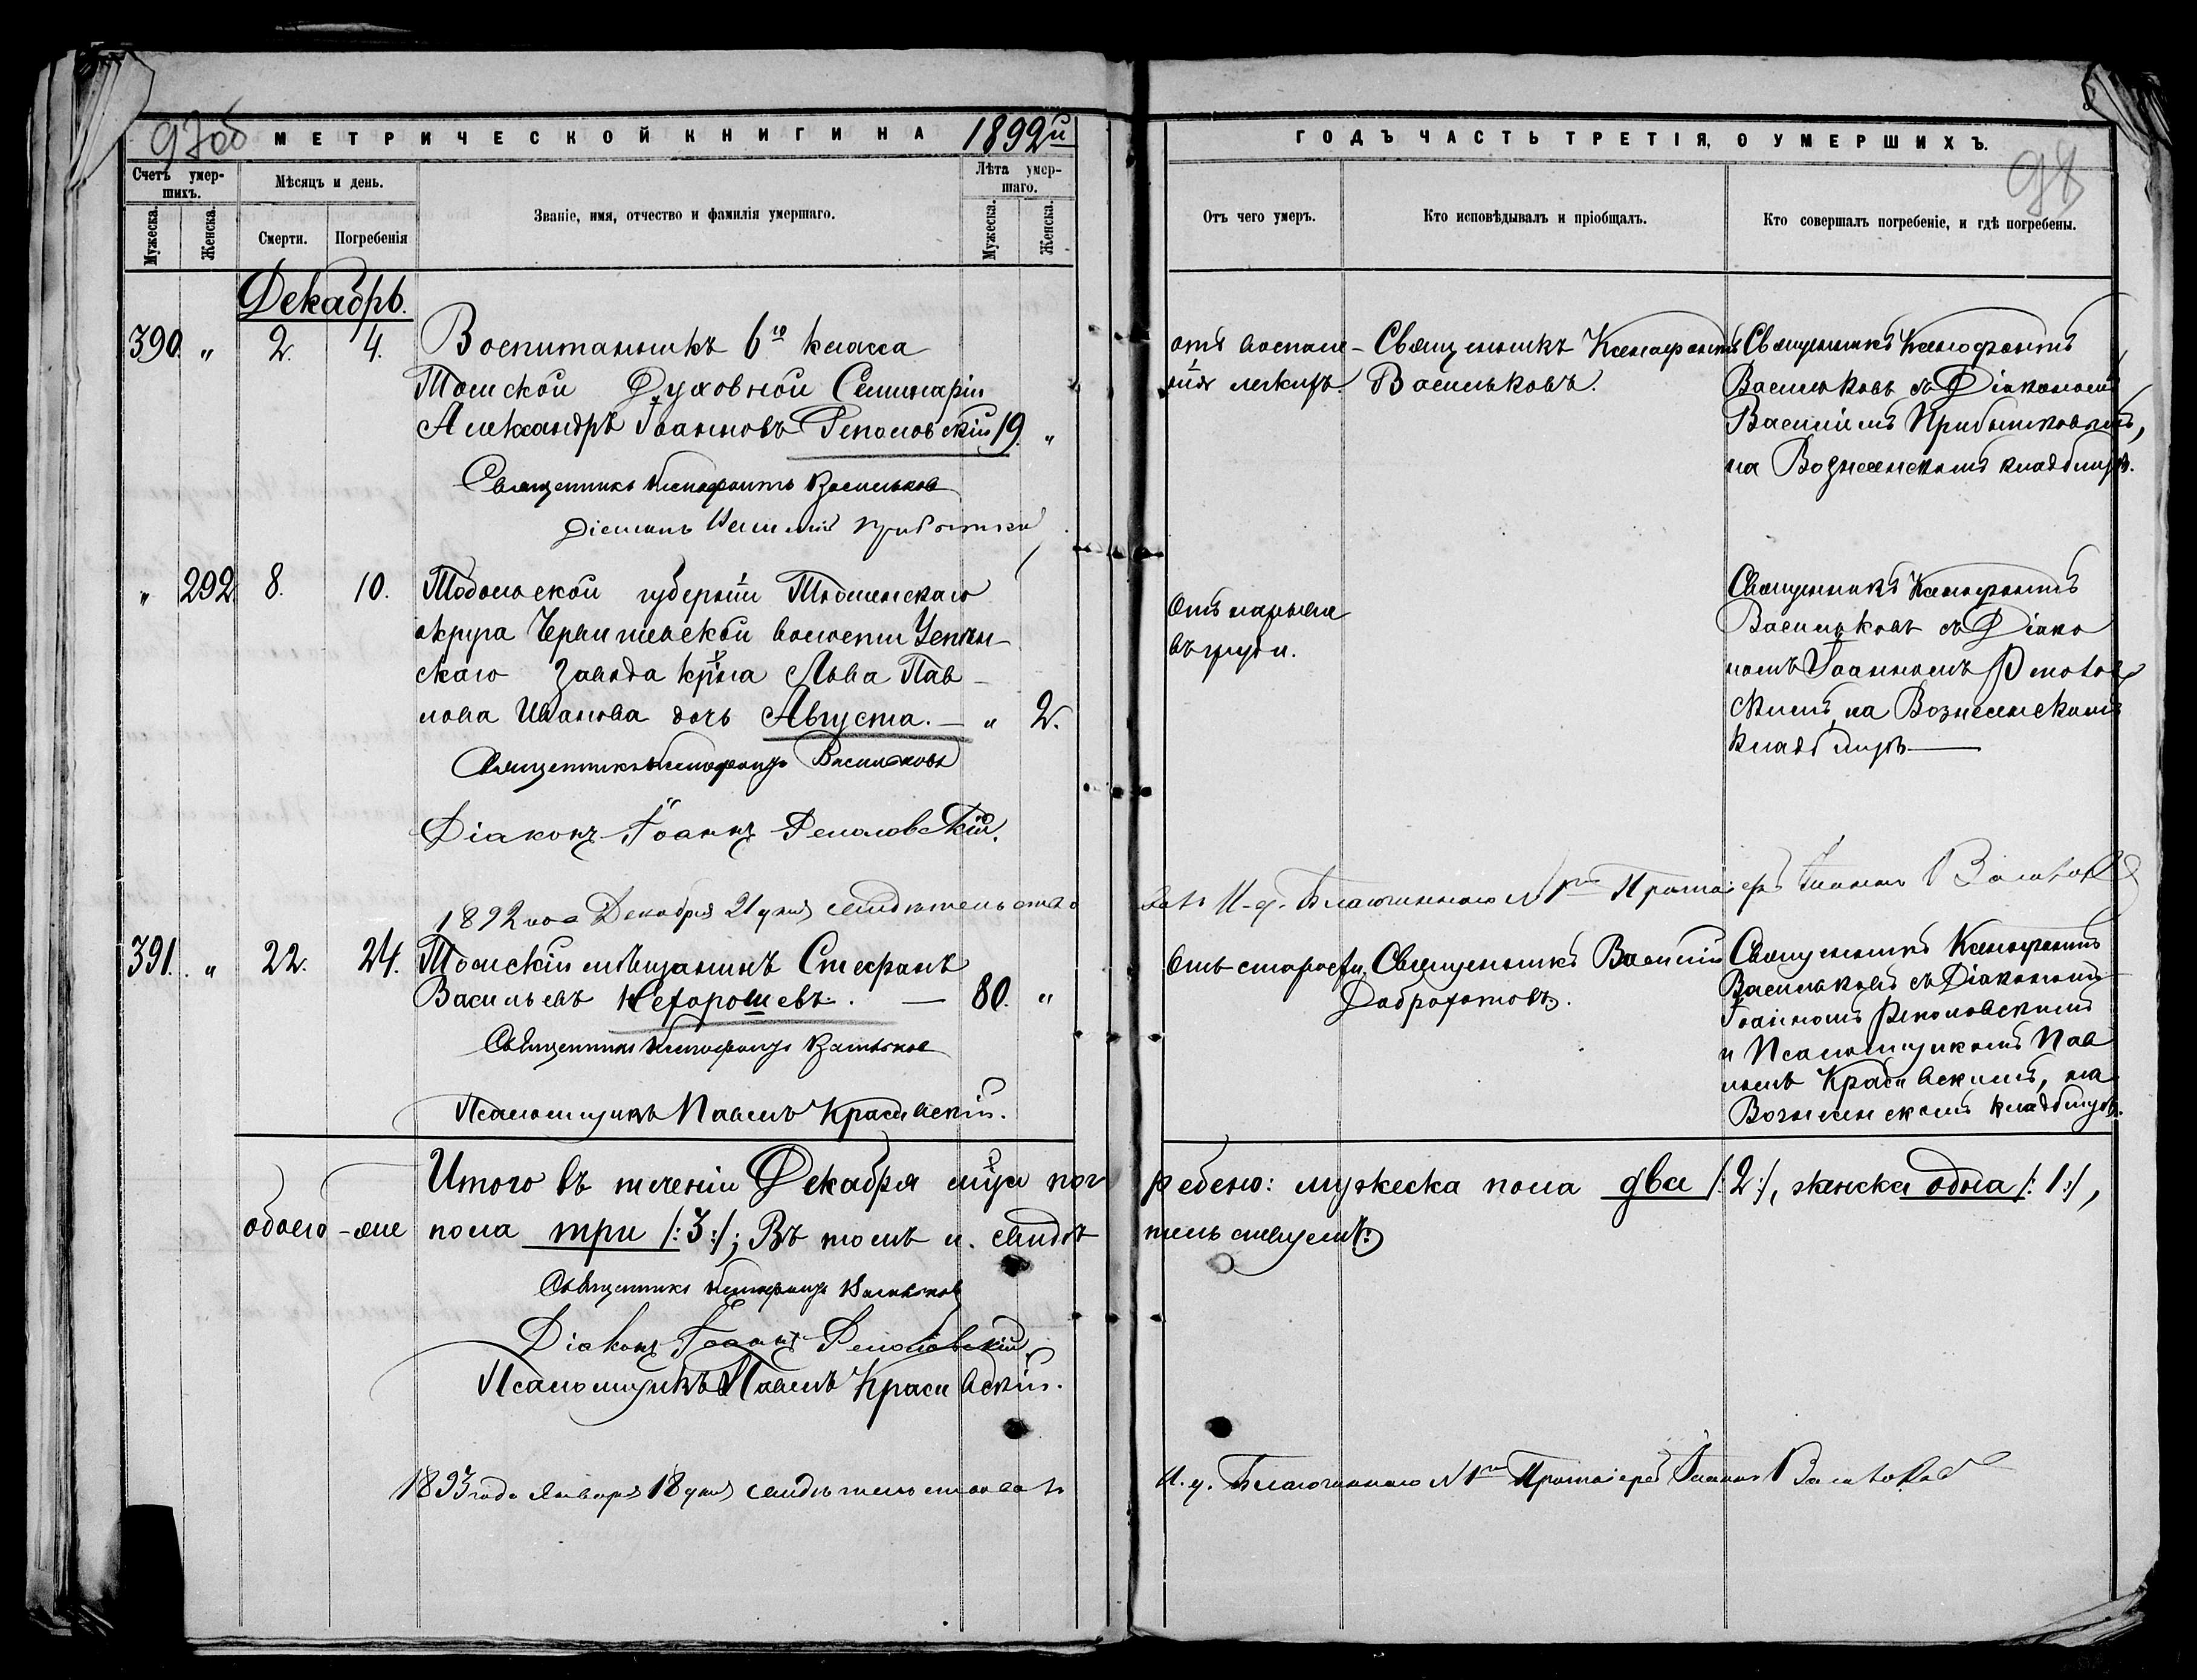 97об
МЕТРИЧЕСКОЙ КНИГИ НА 1892й
Счетъ умер-
шихъ.
Мѣсяцъ и день.
Званіе, имя, отчество и фамилія умершаго.
Лѣта умер-
шаго.
Мужеска.
Женска.
Смерти.
Погребенія
Мужеска.
Женска.
Декабрь.
390. " 2. 4. Воспитанникъ 6го класса
Томской Духовной Семинаріи
Александръ Іоанновъ Реполовскій 19. "
Священникъ Ксенофонтъ Васильковъ
Діаконъ Василій Прибытков
" 292 8. 10. Тобольской губерніи Тюменскаго
округа Червишевской волости Успен-
скаго Завода кр-на Льва Пав-
лова Иванова дочь Августа. — " 2.
Священникъ Ксенофонтъ Васильковъ
Діаконъ Іоаннъ Реполовскій.
1892 года Декабря 21 дня свидѣтельство
391. " 22. 24. Томскій мѣщанинъ Стефанъ
Васильевъ Нехорошевъ. — 80. "
Священникъ Ксенофонтъ Васильков
Псаломщикъ Павелъ Красивскій.
Итого въ теченіи Декабря м-ца пог
обоего пола три /:3:/; Въ томъ и свидѣ
Священникъ Ксенофонтъ Васильков
Діаконъ Іоаннъ Реполовскій
Псаломщикъ Павелъ Красивскій.
1893 года Января 18 дня свидѣтельствовалъ
ГОДЪ ЧАСТЬ ТРЕТІЯ, О УМЕРШИХЪ.
98
Отъ чего умеръ.
Кто исповѣдывалъ и пріобщалъ.
Кто совершалъ погребеніе, и гдѣ погребены.
отъ воспале-
нія легкихъ.
Священникъ Ксенофонтъ
Васильковъ.
Священникъ Ксенофонтъ
Васильковъ съ Діакономъ
Василіемъ Прибытковымъ,
на Вознесенскомъ кладбищѣ.
Отъ нарыва
въ груди.
Священникъ Ксенофонтъ
Васильковъ съ Діако
номъ Іоанномъ Реполов
скимъ, на Вознесенскомъ
кладбищѣ —
валъ И. д. Благочиннаго N 1го Протоіерей
Отъ старости.
Священникъ Василій
Доброхотовъ.
Священникъ Ксенофонтъ
Васильковъ съ Діакономъ
Іоанномъ Реполовскимъ
и Псаломщикомъ Пав
ломъ Красивскимъ, на
Вознесенскомъ кладбищѣ.
ребено: мужеска пола два /:2:/, женска одна /:1:/,
тельствуемъ:
И. д. Благочиннаго N 1го Протоіерей